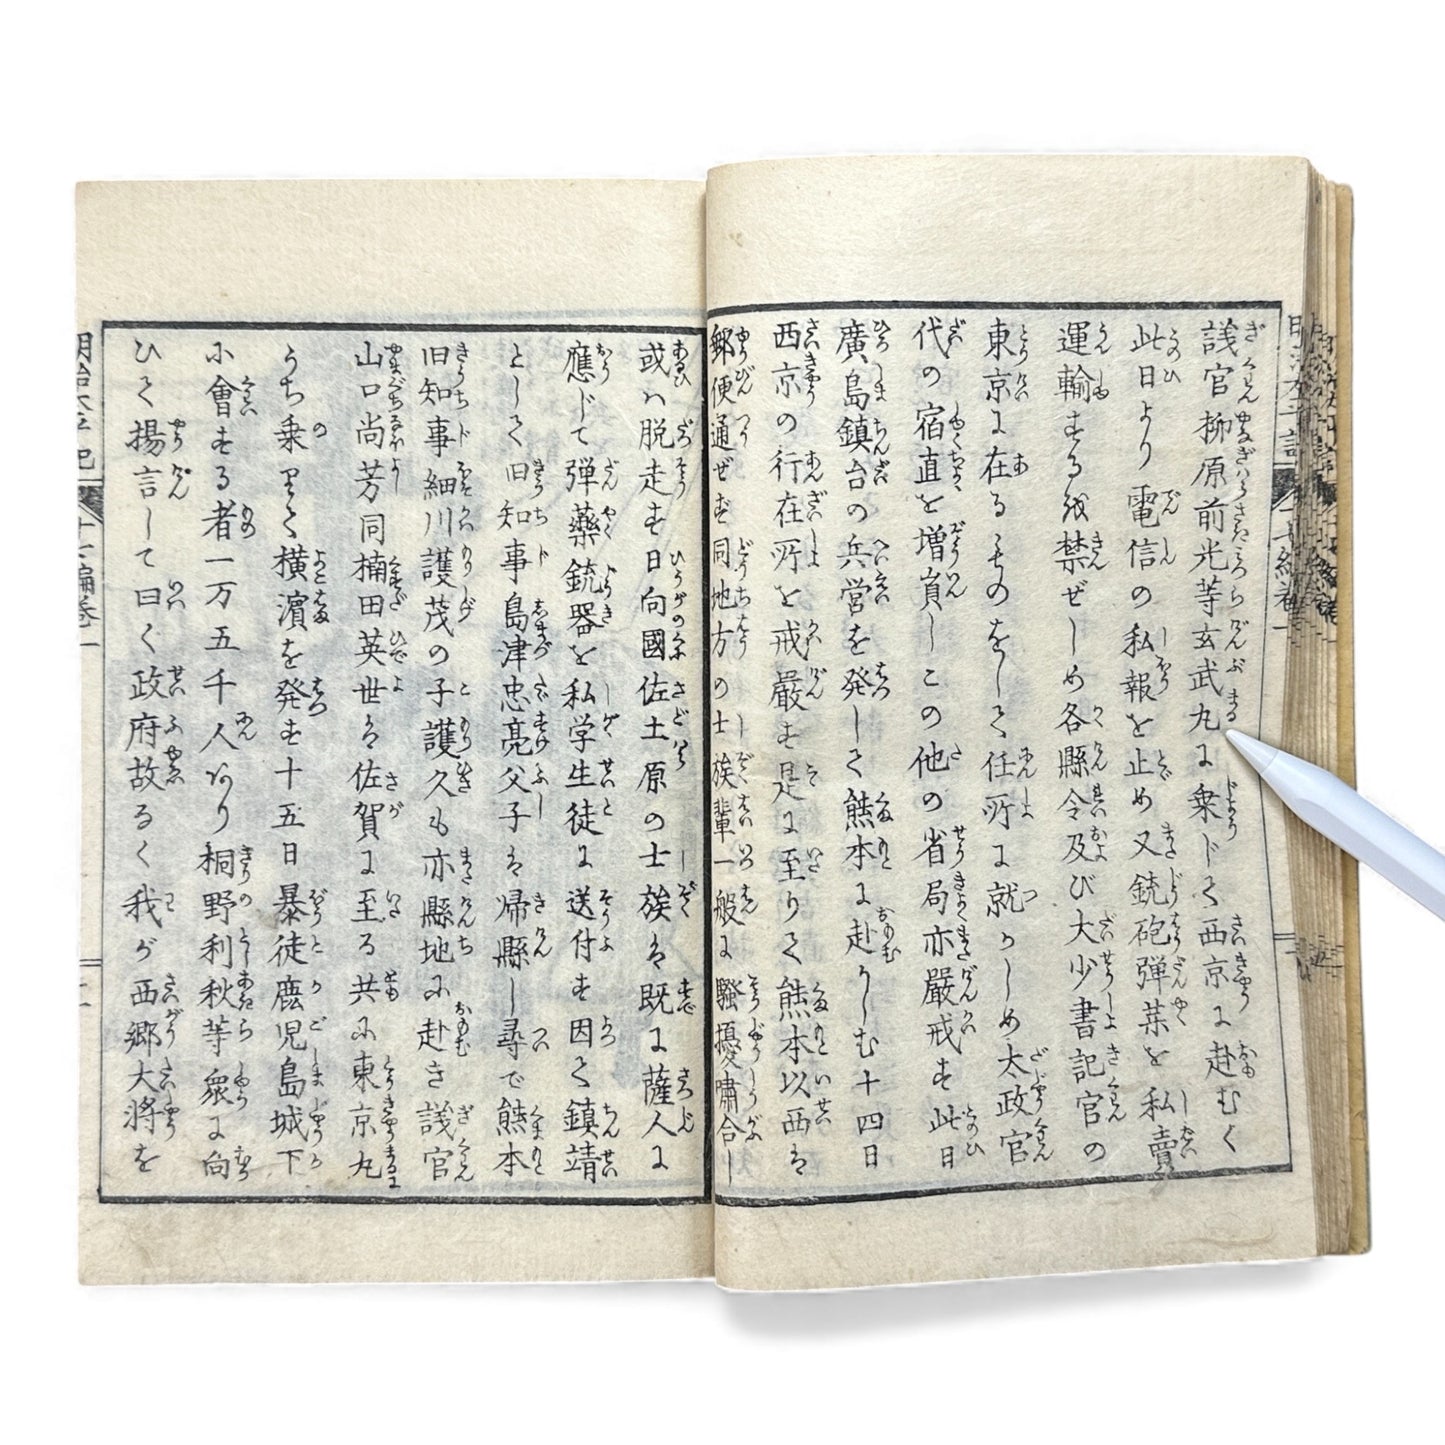 議官柳原前光等玄武丸に乗じて西京に赴むく
此日より電信の私報を止め又銃砲弾薬を私賣
運輸する越禁ぜしめ各縣令及び大少書記官の
東京に在るものをして任所に就かしめ太政官
代の宿直を増員しこの他の省局亦嚴戒す此日
廣島鎮台の兵営を発して熊本に赴かしむ十四日
西京の行在所を戒嚴す是に至りて熊本以西は
郵便通ぜず同地方の士族輩一般に騒擾嘯合し
或ハ脱走す日向國佐土原の士族は既に薩人に
應じて弾藥銃器を私学生徒に送付す因て鎮靖
として旧知事島津忠亮父子は帰縣し尋で熊本
旧知事細川護茂の子護久も亦縣地に赴き議官
山口尚芳同楠田英世は佐賀に至る共に東京丸
うち乗りて横濱を発す十五日暴徒鹿児島城下
に會する者一万五千人あり桐野利秋等衆に向
ひて揚言して曰く政府故なく我が西郷大将を